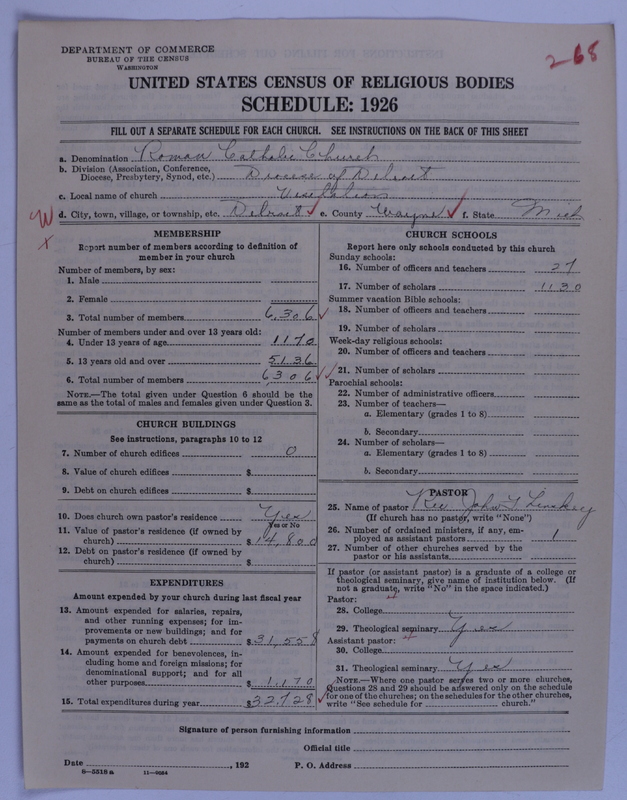 DEPARTMENT OF COMMERCE
BUREAU OF THE CENSUS
WASHINGTON
2-68
UNITED STATES CENSUS OF RELIGIOUS BODIES
SCHEDULE: 1926
FILL OUT A SEPARATE SCHEDULE FOR EACH CHURCH. SEE INSTRUCTIONS ON THE BACK OF THIS SHEET
a. Denomination Roman Catholic Church
b. Division (Association, Conference,
Diocese, Presbytery, Synod, etc.) Diocese of Detroit
c. Local name of church Visitation
d. City, town, village, or township, etc. Detroit e. County Wayne f. State Mich
W
x
MEMBERSHIP
Report number of members according to definition of
member in your church
Number of members, by sex:
1. Male
2. Female
3. Total number of members 6,306
Number of members under and over 13 years old:
4. Under 13 years of age 1170
5. 13 years old and over 5136
6. Total number of members 6306
NOTE.—The total given under Question 6 should be the
same as the total of males and females given under Question 3.
CHURCH BUILDINGS
See instructions, paragraphs 10 to 12
7. Number of church edifices 0
8. Value of church edifices $
9. Debt on church edifices $
10. Does church own pastor's residence Yes
Yes or No
11. Value of pastor's residence (if owned by
church) $ 14,800
12. Debt on pastor's residence (if owned by
church) $
EXPENDITURES
Amount expended by your church during last fiscal year
13. Amount expended for salaries, repairs,
and other running expenses; for im-
provements or new buildings; and for
payments on church debt $ 31,558
14. Amount expended for benevolences, in-
cluding home and foreign missions; for
denominational support; and for all
other purposes $ 1,170
15. Total expenditures during year $ 32,728
CHURCH SCHOOLS
Report here only schools conducted by this church
Sunday schools:
16. Number of officers and teachers 27
17. Number of scholars 1130
Summer vacation Bible schools:
18. Number of officers and teachers
19. Number of scholars
Week-day religious schools:
20. Number of officers and teachers
21. Number of scholars
Parochial schools:
22. Number of administrative officers
23. Number of teachers—
a. Elementary (grades 1 to 8)
b. Secondary
24. Number of scholars—
a. Elementary (grades 1 to 8)
b. Secondary
PASTOR
25. Name of pastor Rev John
(If church has no pastor, write "None")
26. Number of ordained ministers, if any, em-
ployed as assistant pastors 1
27. Number of other churches served by the
pastor or his assistants
If pastor (or assistant pastor) is a graduate of a college or
theological seminary, give name of institution below. (If
not a graduate, write "No" in the space indicated.)
Pastor:
28. College
29. Theological seminary Yes
Assistant pastor:
30. College
31. Theological seminary Yes
NOTE.—Where one pastor serves two or more churches,
Questions 28 and 29 should be answered only on the schedule
for one of the churches; on the schedules for the other churches,
write "See schedule for church."
Signature of person furnishing information
Official title
Date , 192 P. O. Address
8-5518a 11-9034